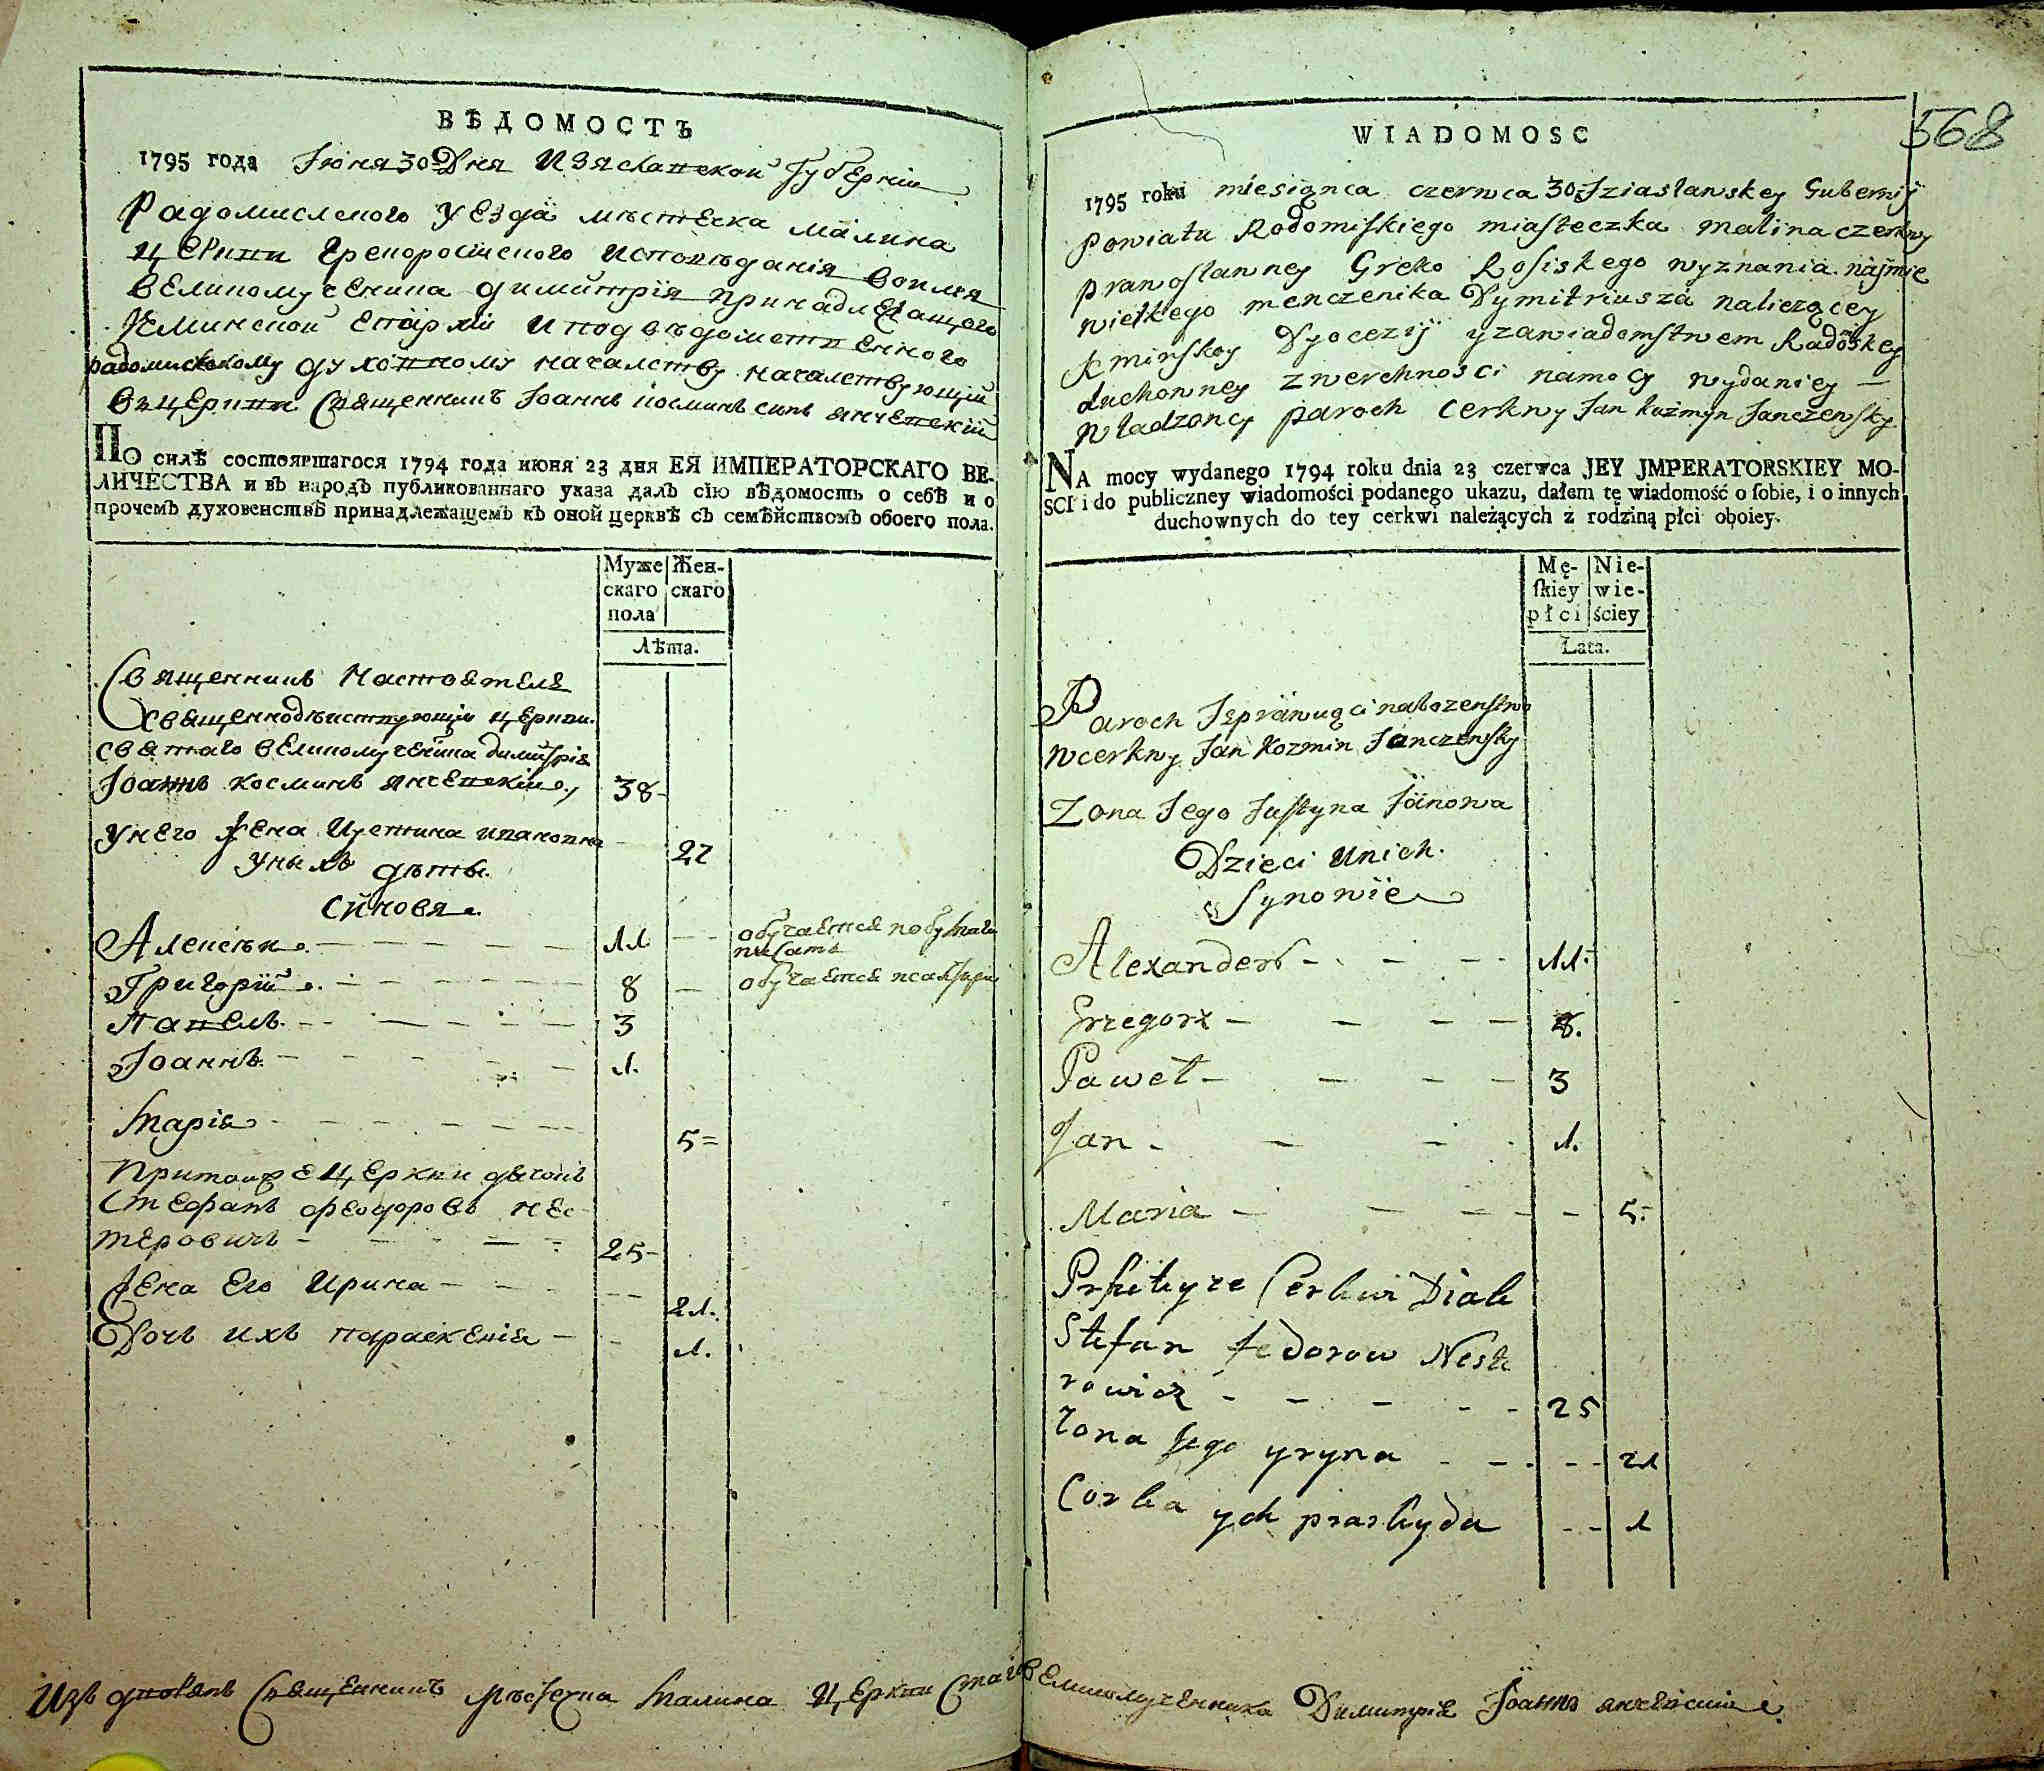 ВѢДОМОСТЬ
1795 года Июня 30 Дня Изяславской Губерніи
Радомислского уезда мѣстечка Малина
церкви Грекоросійского исповѣданія во имя
великомученика Димитрія принадлежащего
Кминской епархіи и подвѣдомственного
радомисльскому духовному началству началствующій
въ церкви Священникъ Іоаннъ Косминъ синъ Янчевскій
По силѣ состоявшагося 1794 года июня 23 дня ЕЯ ИМПЕРАТОРСКАГО ВЕ-
ЛИЧЕСТВА и въ народъ публикованнаго указа далъ сію вѣдомость о себѣ и о
прочемъ духовенствѣ принадлежащемъ къ оной церквѣ съ семѣйствомъ обоего пола.
Муже Жен-
скаго скаго
пола
Лѣта.
Священникъ Настоятель
священнодѣиствующій церкви
святаго великомученика Димитрія
Іоаннъ Косминъ Янчевскій 38
У него жена Иустина Иванова 27
У ныхъ дѣты
Синовя
Алексѣй 11 обучается по бумаги
писать
Григорій 8 обучается псалтири
Павелъ 3
Іоаннъ 1.
Марія 5
При той же церкви дячокъ
Стефанъ Феодоровъ Нес
теровичъ 25
Жена Его Ирина 21.
Дочъ ихъ Параскевія 1.
568
WIADOMOSC
1795 roku miesiąnca czerwca 30 Iziasławskey Gubernij
Powiatu Rodomiskiego miasteczka Malina czerkwy
prawosławney Greko Rosiskego wyznania najmie
wielkego menczenika Dymitriusza naliezącey
Kminskoy Dyocezij y zawiadomstwem Radomskey
duchowney zwerchnosci na mocy wydaniey
władzoncy paroch Cerkwy Jan Kozmyn Janczewsky
NA mocy wydanego 1794 roku dnia 23 czerwca JEY JMPERATORSKIEY MO-
SCI i do publiczney wiadomości podanego ukazu, dałem tę wiadomość o sobie, i o innych
duchownych do tey cerkwi należących z rodziną płci oboiey.
Mę- Nie-
skiey wie-
płci ściey
Lata.
Paroch Isprawuąci nabozenstwo
w cerkwy Jan Kozmin Janczewsky
Zona Jego Justyna Janowa
Dzieci U nich.
Synowie
Alexander 11
Grzegorz 8.
Paweł 3
Jan 1.
Maria 5
Cerkwi Diak
Stefan Fedorow Neste
rowicz 25
Zona Jego Yryna 21
Corka ych Praskyda 1
Священникъ мѣстечка Малина Церкви Стаго Великомученника Димитрія Іоаннъ Янчевскій